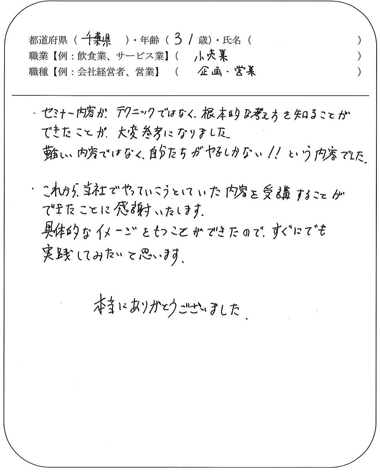 都道府県（ 千葉県 ）・年齢（ 31 歳）・氏名（ ）
職業【例：飲食業、サービス業】（ 小売業 ）
職種【例：会社経営者、営業】（ 企画・営業 ）
・セミナー内容が、テクニックではなく、根本的な考え方を知ることが
できたことが、大変参考になりました。
難しい内容ではなく、自分たちがやるしかない!!という内容でした。
・これから、当社でやっていこうとしていた内容を受講することが
できたことに感謝いたします。
具体的なイメージをもつことができたので、すぐにでも
実践してみたいと思います。
本当にありがとうございました.